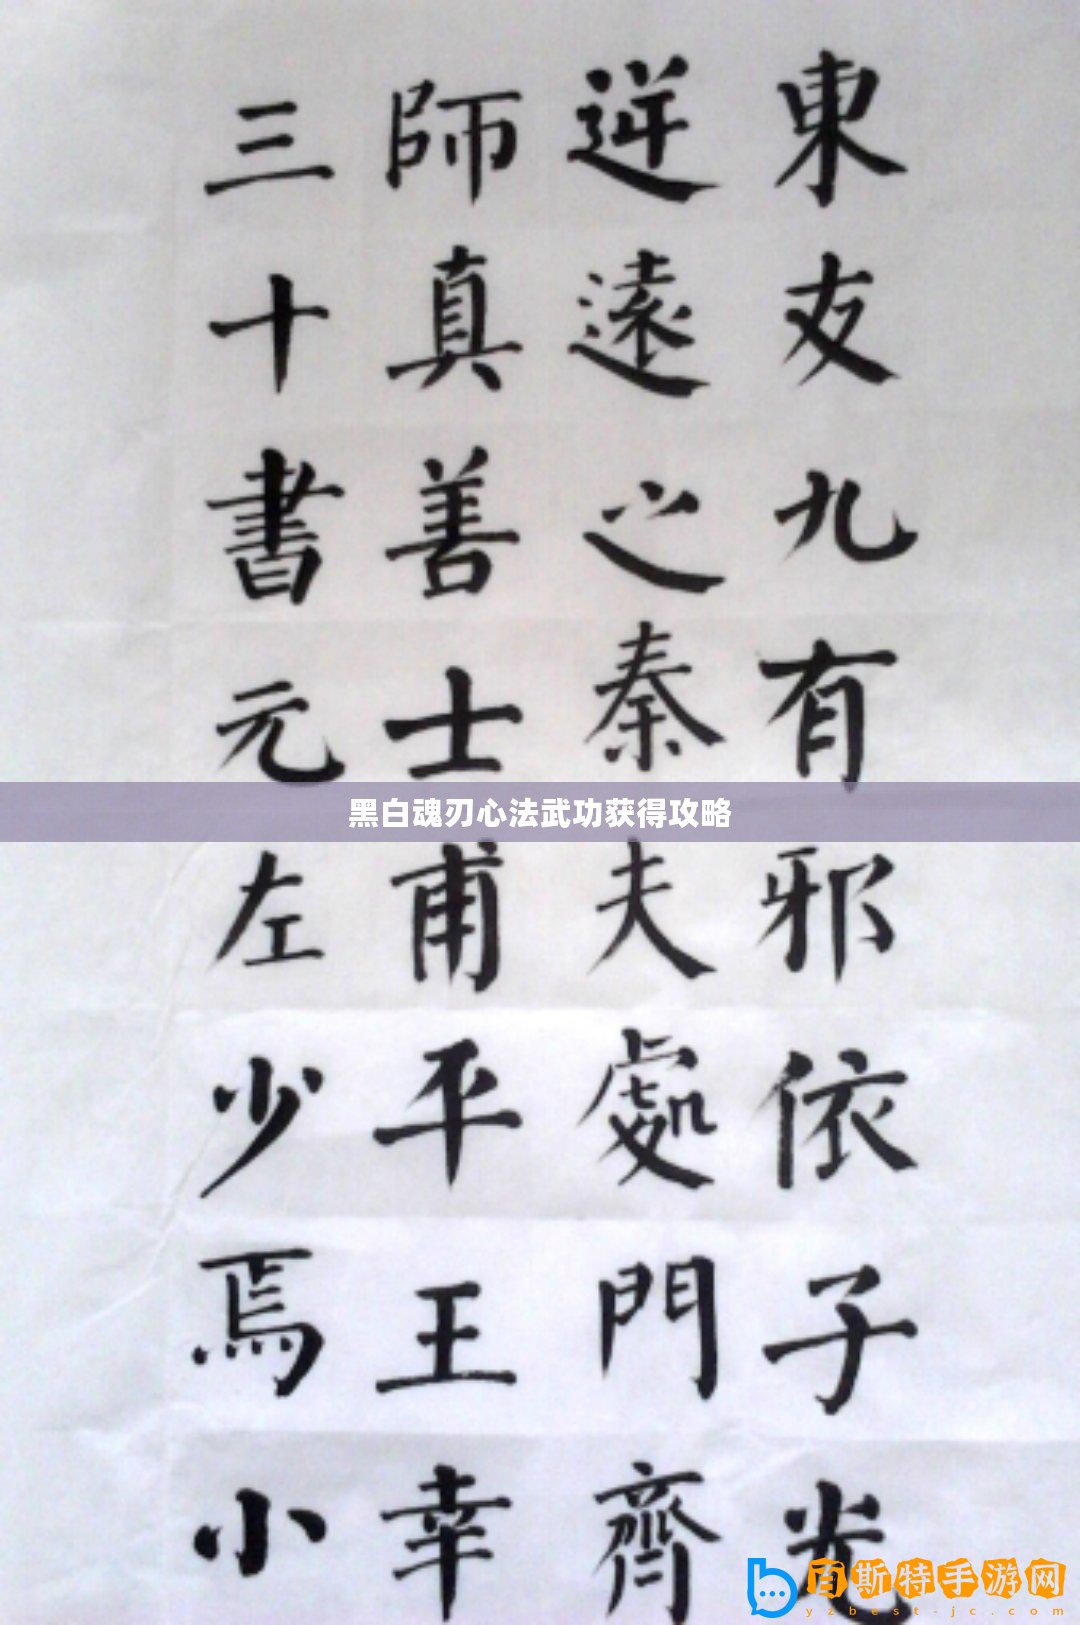 東友九有邪依子光
遠之秦夫處門齊
師真善士甫平王幸
三十書元左少焉小
黑白魂刃心法武功获得攻略
百斯特手游网
yzbest-jc.com